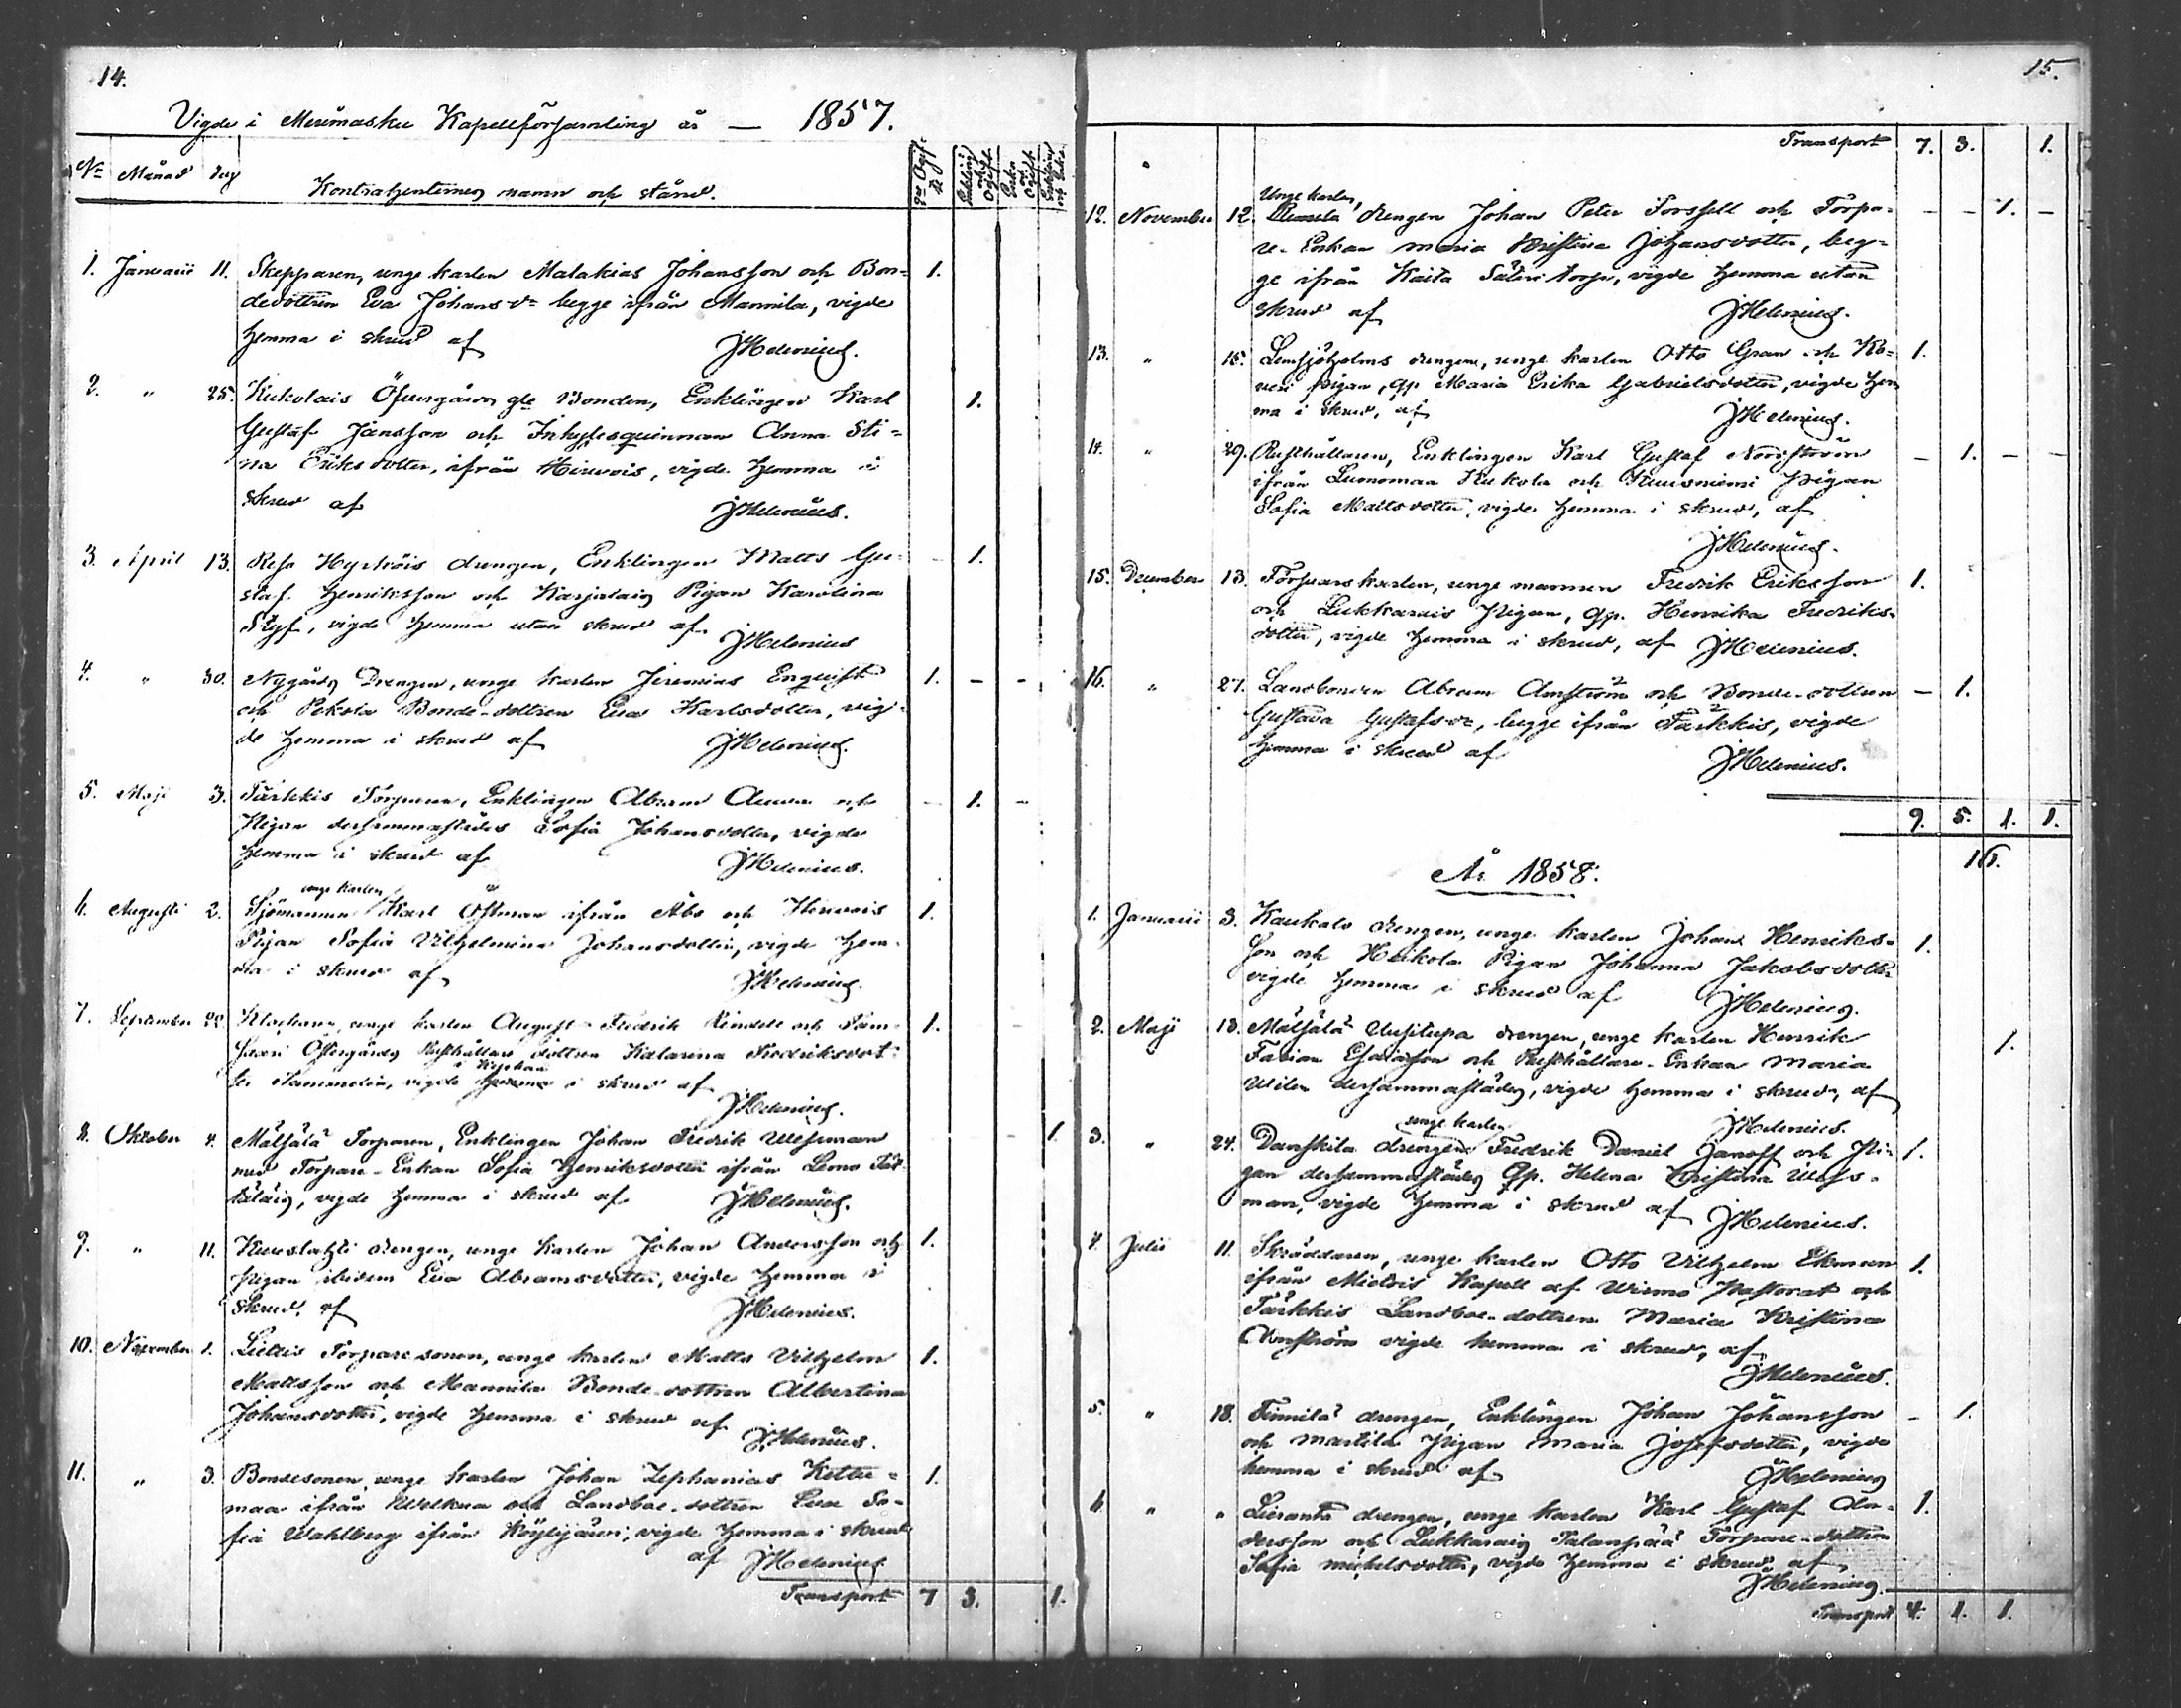 14.
Vigde i Merimasku Kapellförsamling år — 1857.
No Månad dag Kontrahenternes namn och stånd.
1. Januarii 11. Skepparen, unge karlen Malakias Johansson och Bon= 1.
dedottren Eva Johans dr begge ifrån Mannila, vigde
hemma i skrud af JHelenius.
2. " 25. Kukolais Öfvergårds gle Bonden, Enklingen Karl 1.
Gustaf Jansson och Inhyseqvinnan Anna Sti=
na Eriksdotter, ifrån Hirvois, vigde hemma i
skrud af JHelenius.
3. April 13. Reso Hyrköis drengen, Enklingen Matts Gu= - 1.
staf Henriksson och Karjalais Pigan Karolina
Styf, vigde hemma utan skrud af JHelenius
4. " 30. Nygårds Drengen, unge karlen Jeremias Enqvist 1. - -
och Pekola Bonde-dottren Eva Karlsdotter, vig=
de hemma i skrud af JHelenius.
5. Maji 3. Tärkkis Torparen, Enklingen Abram och - 1. -
Pigan dersammastädes Sofia Johansdotter, vigde
hemma i skrud af JHelenius.
unge karlen
6. Augusti 2. Sjömannen Karl Östman ifrån Åbo och Hirvois 1.
Pigan Sofia Vilhelmina Johansdotter, vigde hem=
ma i skrud af JHelenius.
7. September 22. Klockaren, unge karlen August Fredrik Lindell och Sam= 1.
saari Östergårds Rusthållare dottren Katarina Fredriksdot=
i Kyrkan
ter Sammelin, vigde hemma i skrud af
JHelenius.
8. Oktober 4. Mälsälä Torparen, Enklingen Johan Fredrik Wessman 1.
med Torpare-Enkan Sofia Henriksdotter ifrån Lemo
vigde hemma i skrud af JHelenius.
9. " 11. Kuuslahti drengen, unge karlen Johan Andersson och 1.
pigan ibidem Eva Abramsdotter, vigde hemma i
skrud, af JHelenius.
10. November 1. Liettis Torpare sonen, unge karlen Matts Vilhelm 1.
Mattsson och Mannila Bonde dottren Albertina
Johansdotter, vigde hemma i skrud af
JHelenius.
11. " 3. Bondesonen, unge karlen Johan Zephanias Kettu= 1.
maa ifrån Velkua och Landboe-dottren Eva So=
fia Wahlberg ifrån Köylijärvi, vigde hemma i skrud
af JHelenius
Transport 7 3. 1.
15.
Transport 7. 3. 1.
Unge karlen,
12. November 12. drengen Johan Peter Forssell och Torpa= - - 1. -
re-Enkan Maria Kristina Johansdotter, beg=
ge ifrån Kaita Säteri torp, vigde hemma utan
skrud af JHelenius.
13. " 15. Lemsjöholms drengen, unge karlen Otto Gran och 1.
pigan, Qp. Maria Erika Gabrielsdotter, vigde hem
ma i skrud, af JHelenius.
14. " 29. Rusthållaren, Enklingen Karl Gustaf Nordström - 1. - -
ifrån Luonomaa Kukola och Kuusniemi Pigan
Sofia Mattsdotter, vigde hemma i skrud, af
JHelenius.
15. December 13. Torpareskarlen, unge mannen Fredrik Eriksson 1.
och Lukkarais Pigan, Qp. Henrika Fredriks=
dotter, vigde hemma i skrud, af JHelenius.
16. " 27. Landbonden Abram Arnström och Bonde-dottren - 1.
Gustava Gustafs dr, begge ifrån Tärkkis, vigde
hemma i skrud af JHelenius.
9. 5. 1. 1.
16.
År 1858.
1. Januarii 3. Kaukalo drengen, unge karlen Johan Henriks= 1.
son och Heikola Pigan Johanna Jakobsdotter
vigde hemma i skrud af JHelenius.
2. Maji 13. Mälsälä Uusitupa drengen, unge karlen Henrik 1.
Fabian Esaiasson och Rusthållare-Enkan Maria
Wilen dersammastädes, vigde hemma i skrud, af
JHelenius.
unge karlen
3. " 24. Danskila drengen Fredrik Daniel Janoff och Pi= 1.
gan dersammastädes Qp. Helena Kristina Wess=
man, vigde hemma i skrud af JHelenius.
4. Julii 11. Skräddaren, unge karlen Otto Vilhelm Ekman 1.
ifrån Mietois Kapell af Wirmo Pastorat och
Tärkkis Landboe-dottren Maria Kristina
Arnström vigde hemma i skrud, af
JHelenius.
5. " 18. Finnilä drengen, Enklingen Johan Johansson - 1.
och Martila Pigan Maria Josefsdotter, vigde
hemma i skrud af JHelenius
6. " " Lieranta drengen, unge karlen Karl Gustaf An= 1.
dersson och Lukkarais Talanpää Torpare-dottren
Sofia Michelsdotter, vigde hemma i skrud af
JHelenius.
Transport 4. 1. 1.